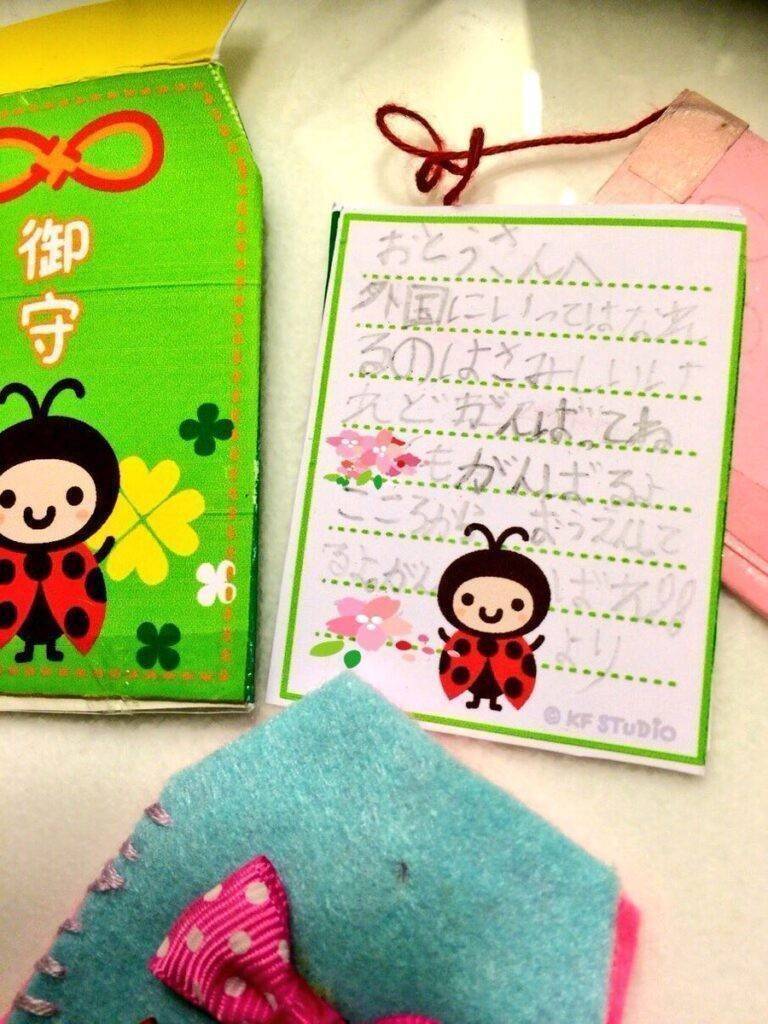 御守
おとうさんへ
外国にいってはなれ
るのはさみしいけ
れどがんばってね
もがんばるよ
こころから おうえんして
るよがんばれ!!
より
© KF STUDiO